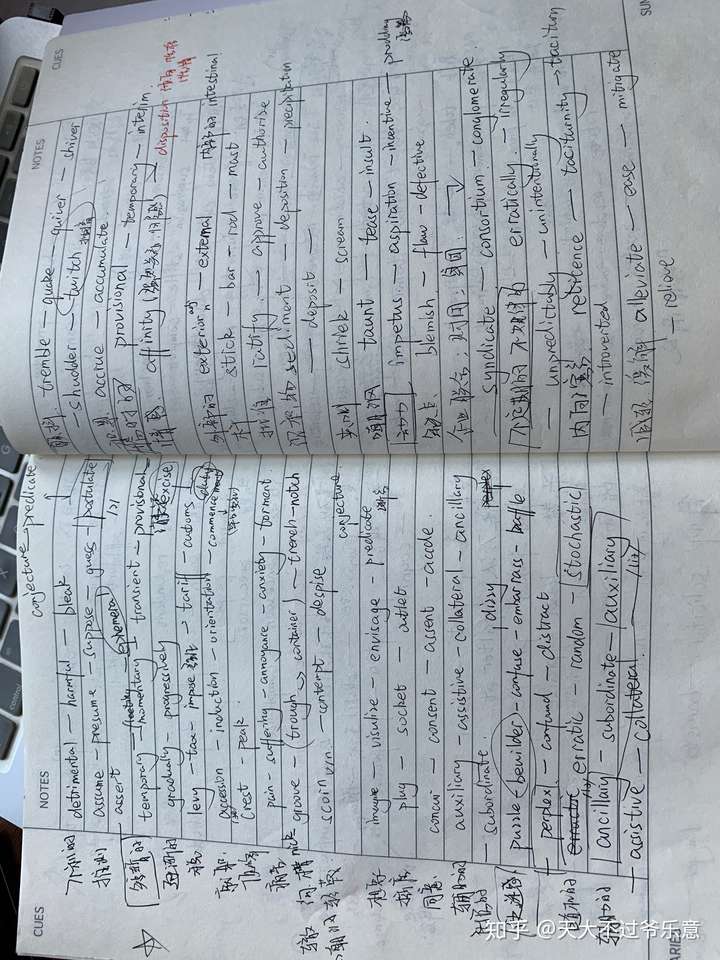 CUES
NOTES
conjecture — predicate
不利的 detrimental — harmful — bleak
推测 assume — presume — suppose — guess — postulate
— assert
短暂的 temporary — momentary — transient — provisional
ephemeral
逐渐的 gradually — progressively
税 levy — tax — impose — tariff — customs — excise
就职 accession — induction — orientation — commencement
crest — peak
痛苦 pain — suffering — annoyance — anxiety — torment
groove — (trough → container) — trench — notch
scorn v.n. — contempt — despise
conjecture
想象 imagine — visulize — envisage — predicate
插座 plug — socket — outlet
同意 concur — consent — assent — accede
辅助的 auxiliary — assistive — collateral — ancillary
— subordinate
dizzy
puzzle — bewilder — confuse — embarrass — baffle
— perplex — confound — distract
随机的 erratic — random — stochastic
辅助的 ancillary — subordinate — auxiliary
— assistive — collateral
CUES
NOTES
SUM
tremble — quake — quiver — shiver
— shudder — twitch 抽搐
accrue — accumulate
暂时的 provisional — temporary — interim
affinity
disposition
外部的 exterior — external 内部的 intestinal
stick — bar — rod — mast
批准 ratify — approve — authorise
沉积物 sediment — deposition — precipitation
— deposit —
尖叫 shriek — scream
嘲讽 taunt — tease — insult
动力 impetus — aspiration — incentive — prodding
缺点 blemish — flaw — defective
企业联合; 财团; 集团
— syndicate — consortium — conglomerate
不定期的 不规律的 erratically — irregulary
— unpredictably — unintentionally
内向 寡言 reticence — taciturnity → taciturn
— introverted
减轻 缓解 alleviate — ease — mitigate
— relieve
知乎 @天大不过爷乐意